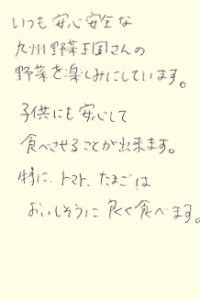 いつも安心安全な
九州野菜王国さんの
野菜を楽しみにしています。
子供にも安心して
食べさせることが出来ます。
特に、トマト、たまごは
おいしそうに良く食べます。